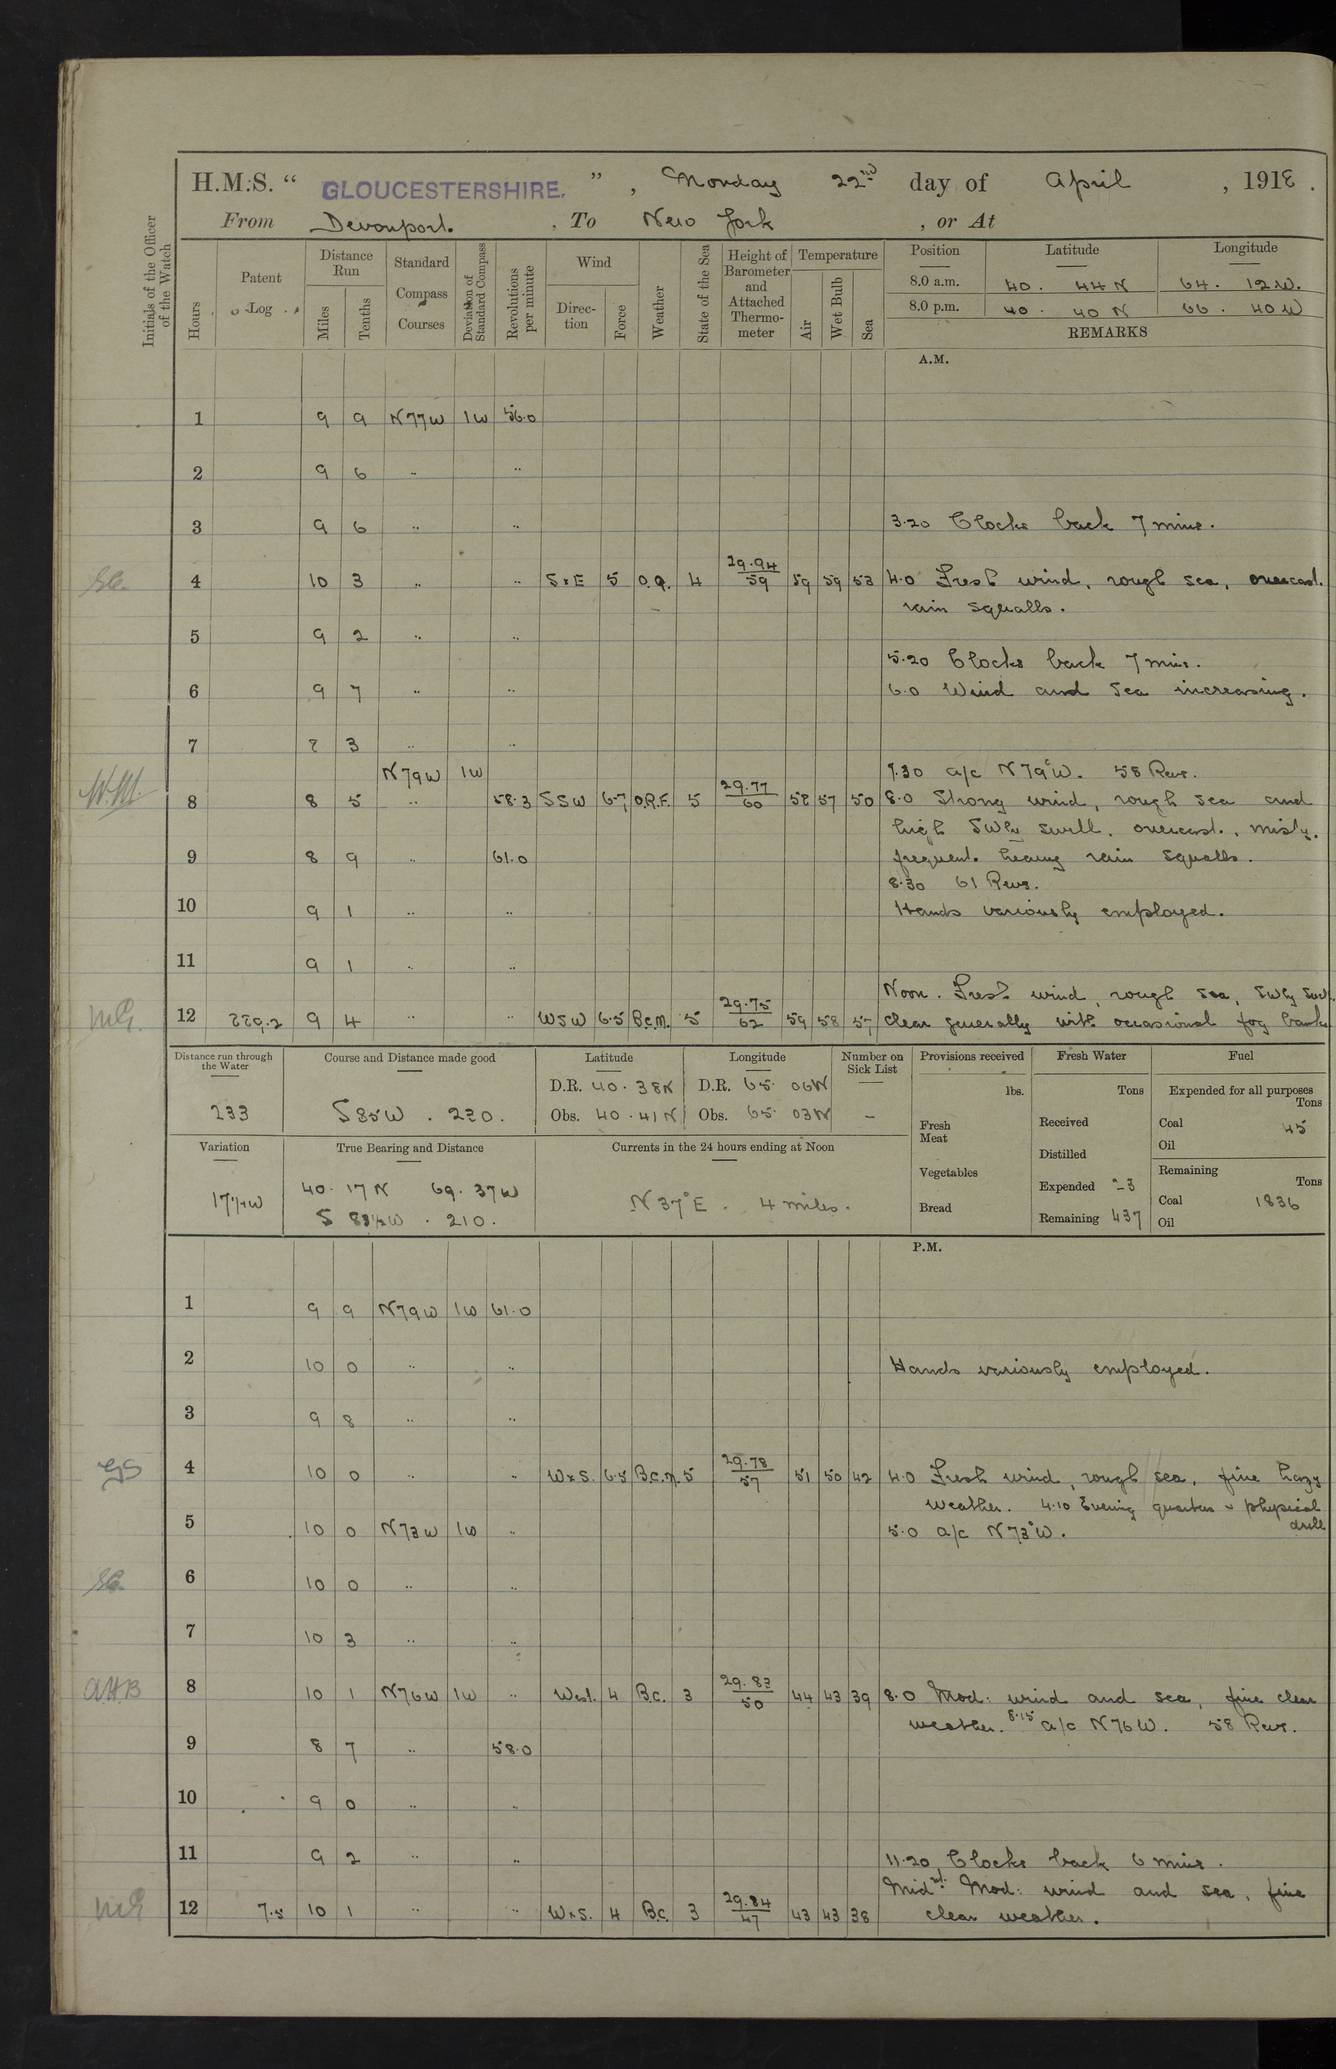 H.M.S. “ GLOUCESTERSHIRE. ” , Monday 22nd day of April , 1918 .
From Devonport. , To New York , or At
Initials of the Officer of the Watch
Hours
Patent Log
Distance Run
Miles
Tenths
Standard Compass Courses
Deviation of Standard Compass
Revolutions per minute
Wind
Direction
Force
Weather
State of the Sea
Height of Barometer and Attached Thermometer
Temperature
Air
Wet Bulb
Sea
Position Latitude Longitude
8.0 a.m. 40 . 44 N 64 . 12 W.
8.0 p.m. 40 . 40 N 66 . 40 W
REMARKS
A.M.
1 9 9 N77W 1W 56.0
2 9 6 .. ..
3 9 6 .. .. 3.20 Clocks back 7 mins.
4 10 3 .. .. SxE 5 O.q. 4 29.94 59 59 59 53 4.0 Fresh wind, rough sea, overcast.
rain squalls.
5 9 2 .. ..
5.20 Clocks back 7 mins.
6 9 7 .. .. 6.0 Wind and sea increasing.
7 3 .. ..
N79W 1W 7.30 a/c N79°W. 58 Revs.
W.M. 8 8 5 .. 58.3 SSW 6.7 O.R.F. 5 29.77 60 58 57 50 8.0 Strong wind, rough sea and
high SWly swell, overcast, misty,
9 8 9 .. 61.0 frequent heavy rain squalls.
8.30 61 Revs.
10 9 1 .. .. Hands variously employed.
11 9 1 .. ..
Noon. Fresh wind, rough sea, SWly swell.
12 229.2 9 4 .. .. WSW 6.5 B.c.m. 5 29.75 62 59 58 57 Clear generally with occasional fog banks
Distance run through the Water
233
Course and Distance made good
S85W . 230.
Latitude
D.R. 40 . 38N
Obs. 40 . 41N
Longitude
D.R. 65. 06W
Obs. 65. 03W
Number on Sick List
–
Provisions received
lbs.
Fresh Meat
Vegetables
Bread
Fresh Water
Tons
Received
Distilled
Expended 23
Remaining 437
Fuel
Expended for all purposes
Tons
Coal 45
Oil
Remaining
Tons
Coal 1836
Oil
Variation
17¼W
True Bearing and Distance
40. 17N 69. 37W
S 83½W . 210.
Currents in the 24 hours ending at Noon
N37°E . 4 miles.
P.M.
1 9 9 N79W 1W 61.0
2 10 0 .. .. Hands variously employed.
3 9 8 .. ..
GS 4 10 0 .. .. WxS. 6.5 B.c.m. 5 29.78 57 51 50 42 4.0 Fresh wind, rough sea, fine hazy
weather. 4.10 Evening quarters & physical
drill
5 10 0 N73W 1W .. 5.0 a/c N73°W.
6 10 0 .. ..
7 10 3 .. ..
AHB 8 10 1 N76W 1W .. West. 4 B.c. 3 29.83 50 44 43 39 8.0 Mod: wind and sea, fine clear
weather. 8.15 a/c N76W. 58 Revs.
9 8 7 .. 58.0
10 9 0 .. ..
11 9 2 .. .. 11.20 Clocks back 6 mins.
Midnt. Mod: wind and sea, fine
12 7.5 10 1 .. .. WxS. 4 B.c. 3 29.84 47 43 43 38 clear weather.